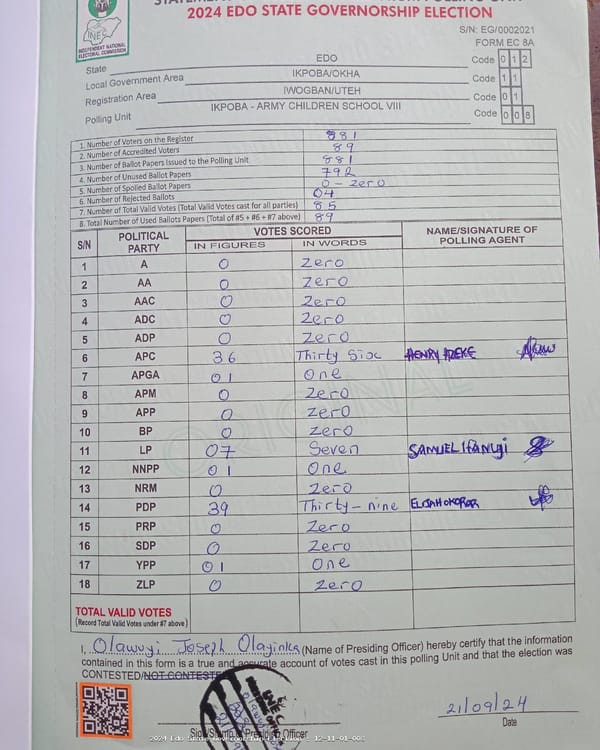 2024 EDO STATE GOVERNORSHIP ELECTION
INEC
INDEPENDENT NATIONAL ELECTORAL COMMISSION
S/N: EG/0002021
FORM EC 8A
State EDO Code 0 1 2
Local Government Area IKPOBA/OKHA Code 1 1
Registration Area IWOGBAN/UTEH Code 0 1
Polling Unit IKPOBA - ARMY CHILDREN SCHOOL VIII Code 0 0 8
1. Number of Voters on the Register 881
2. Number of Accredited Voters 89
3. Number of Ballot Papers Issued to the Polling Unit 881
4. Number of Unused Ballot Papers 792
5. Number of Spoiled Ballot Papers 0 - Zero
6. Number of Rejected Ballots 04
7. Number of Total Valid Votes (Total Valid Votes cast for all parties) 85
8. Total Number of Used Ballots Papers (Total of #5 + #6 + #7 above) 89
S/N POLITICAL PARTY VOTES SCORED NAME/SIGNATURE OF POLLING AGENT
IN FIGURES IN WORDS
1 A 0 Zero
2 AA 0 Zero
3 AAC 0 Zero
4 ADC 0 Zero
5 ADP 0 Zero
6 APC 36 Thirty Six HENRY
7 APGA 01 One
8 APM 0 Zero
9 APP 0 Zero
10 BP 0 Zero
11 LP 07 Seven SAMUEL Ifanyi
12 NNPP 01 One
13 NRM 0 Zero
14 PDP 39 Thirty-nine ELIJAH
15 PRP 0 Zero
16 SDP 0 Zero
17 YPP 01 One
18 ZLP 0 Zero
TOTAL VALID VOTES
(Record Total Valid Votes under #7 above)
I, Olawuyi Joseph Olayinka (Name of Presiding Officer) hereby certify that the information
contained in this form is a true and accurate account of votes cast in this polling Unit and that the election was
CONTESTED/NOT CONTESTED
21/09/24
Officer
Date